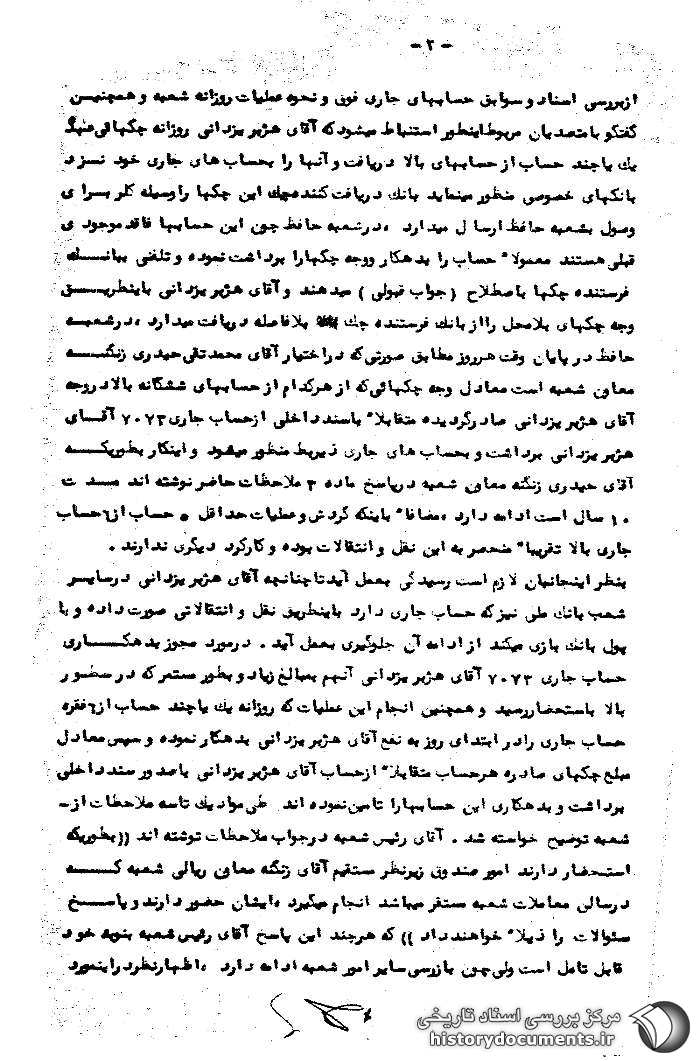 - ۲ -
ازبررسی اسناد و سوابق حسابهای جاری فوق و نحوه عملیات روزانه شعبه و همچنین
گفتگو با متصدیان مربوط اینطور استنباط میشود که آقای هژبر یزدانی روزانه چکهائی
یك یاچند حساب از حسابهای بالا دریافت و آنها را بحساب های جاری خود نزد
بانکهای خصوصی منظور مینماید بانك دریافت کننده چك این چکها را وسیله کلر برای
وصول بشعبه حافظ ارسال میدارد ، در شعبه حافظ چون این حسابها فاقد موجودی
قبلی هستند معمولا" حساب را بدهکار و وجه چکها را برداشت نموده و تلفنی ببانك
فرستنده چکها باصطلاح (جواب قبولی) میدهند و آقای هژبر یزدانی باینطریق
وجه چکهای بلامحل را از بانك فرستنده چك بلافاصله دریافت میدارد ، در شعبه
حافظ در پایان وقت هر روز مطابق صورتی که در اختیار آقای محمد تقی حیدری زنگنه
معاون شعبه است معادل وجه چکهائی که از هر کدام از حسابهای ششگانه بالا در وجه
آقای هژبر یزدانی صادر گردیده متقابلا" با سند داخلی از حساب جاری ۷۰۷۳ آقای
هژبر یزدانی برداشت و بحساب های جاری ذیربط منظور میشود و اینکار بطوریکه
آقای حیدری زنگنه معاون شعبه در پاسخ ماده ۳ ملاحظات حاضر نوشته اند مدت
۱۰ سال است ادامه دارد ، مضافا" باینکه گردش و عملیات حداقل ۵ حساب از ۶ حساب
جاری بالا تقریبا" منحصر به این نقل و انتقالات بوده و کارکرد دیگری ندارند .
بنظر اینجانبان لازم است رسیدگی بعمل آید تا چنانچه آقای هژبر یزدانی در سایر
شعب بانك ملی نیز که حساب جاری دارد باینطریق نقل و انتقالاتی صورت داده و با
پول بانك بازی میکند از ادامه آن جلوگیری بعمل آید . در مورد مجوز بدهکاری
حساب جاری ۷۰۷۳ آقای هژبر یزدانی آنهم بمبالغ زیاد و بطور مستمر که در سطور
بالا باستحضار رسید و همچنین انجام این عملیات که روزانه یك یا چند حساب از ۶ فقره
حساب جاری را در ابتدای روز به نفع آقای هژبر یزدانی بدهکار نموده و سپس معادل
مبلغ چکهای صادره هر حساب متقابلا" از حساب آقای هژبر یزدانی با صدور سند داخلی
برداشت و بدهکاری این حسابها را تامین نموده اند طی مواد یك تا سه ملاحظات از -
شعبه توضیح خواسته شد . آقای رئیس شعبه در جواب ملاحظات نوشته اند ((بطوریکه
استحضار دارند امور صندوق زیر نظر مستقیم آقای زنگنه معاون ریالی شعبه که
در سالن معاملات شعبه مستقر میباشد انجام میگیرد ، ایشان حضور دارند و پاسخ
سئوالات را ذیلا" خواهند داد)) که هر چند این پاسخ آقای رئیس شعبه بنوبه خود
قابل تامل است ولی چون بازرسی سایر امور شعبه ادامه دارد ، اظهار نظر در اینمورد
مرکز بررسی اسناد تاریخی
historydocuments.ir